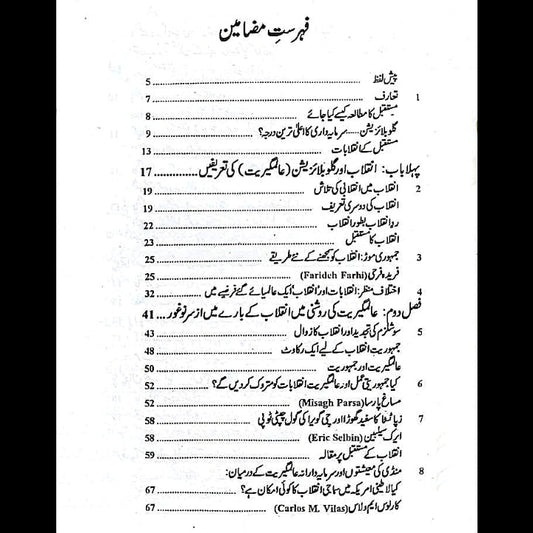 فہرستِ مضامین
پیش لفظ ........ 5
1 تعارف ........ 7
مستقبل کا مطالعہ کیسے کیا جائے ........ 8
گلوبلائزیشن ..... سرمایہ داری کا اعلیٰ ترین درجہ؟ ........ 9
مستقبل کے انقلابات ........ 13
پہلا باب: انقلاب اور گلوبلائزیشن (عالمگیریت) کی تعریفیں ........ 17
2 انقلاب میں انقلابی کی تلاش ........ 19
انقلاب کی دوسری تعریف ........ 19
ردِ انقلاب بطور انقلاب ........ 22
انقلاب کا مستقبل ........ 23
3 جمہوری موڑ: انقلاب کو سمجھنے کے نئے طریقے ........ 25
فریدہ فرحی (Farideh Farhi) ........ 25
4 اختلافِ منظر: انقلابات اور انقلاب ایک عالمیائے گئے فریمے میں ........ 32
فصل دوم: عالمگیریت کی روشنی میں انقلاب کے بارے میں از سرِ نو غور ... 41
5 سوشلزم کی تجدید اور انقلاب کا زوال ........ 43
جمہوریت انقلاب کے لیے ایک رکاوٹ ........ 48
عالمگیریت اور جمہوریت ........ 50
6 کیا جمہوریتی عمل اور عالمگیریت انقلابات کو متروک کر دیں گے؟ ........ 52
مساغ پارسا (Misagh Parsa) ........ 52
7 زپاٹا کا سفید گھوڑا اور چی گویرا کی گول چپٹی ٹوپی ........ 58
ایرک سیلبین (Eric Selbin) ........ 58
انقلاب کے مستقبل پر مقالہ ........ 59
8 منڈی کی معیشتوں اور سرمایہ دارانہ عالمگیریت کے درمیان:
کیا لاطینی امریکہ میں سماجی انقلاب کا کوئی امکان ہے؟ ........ 67
کارلوس ایم ولاس (Carlos M. Vilas) ........ 67